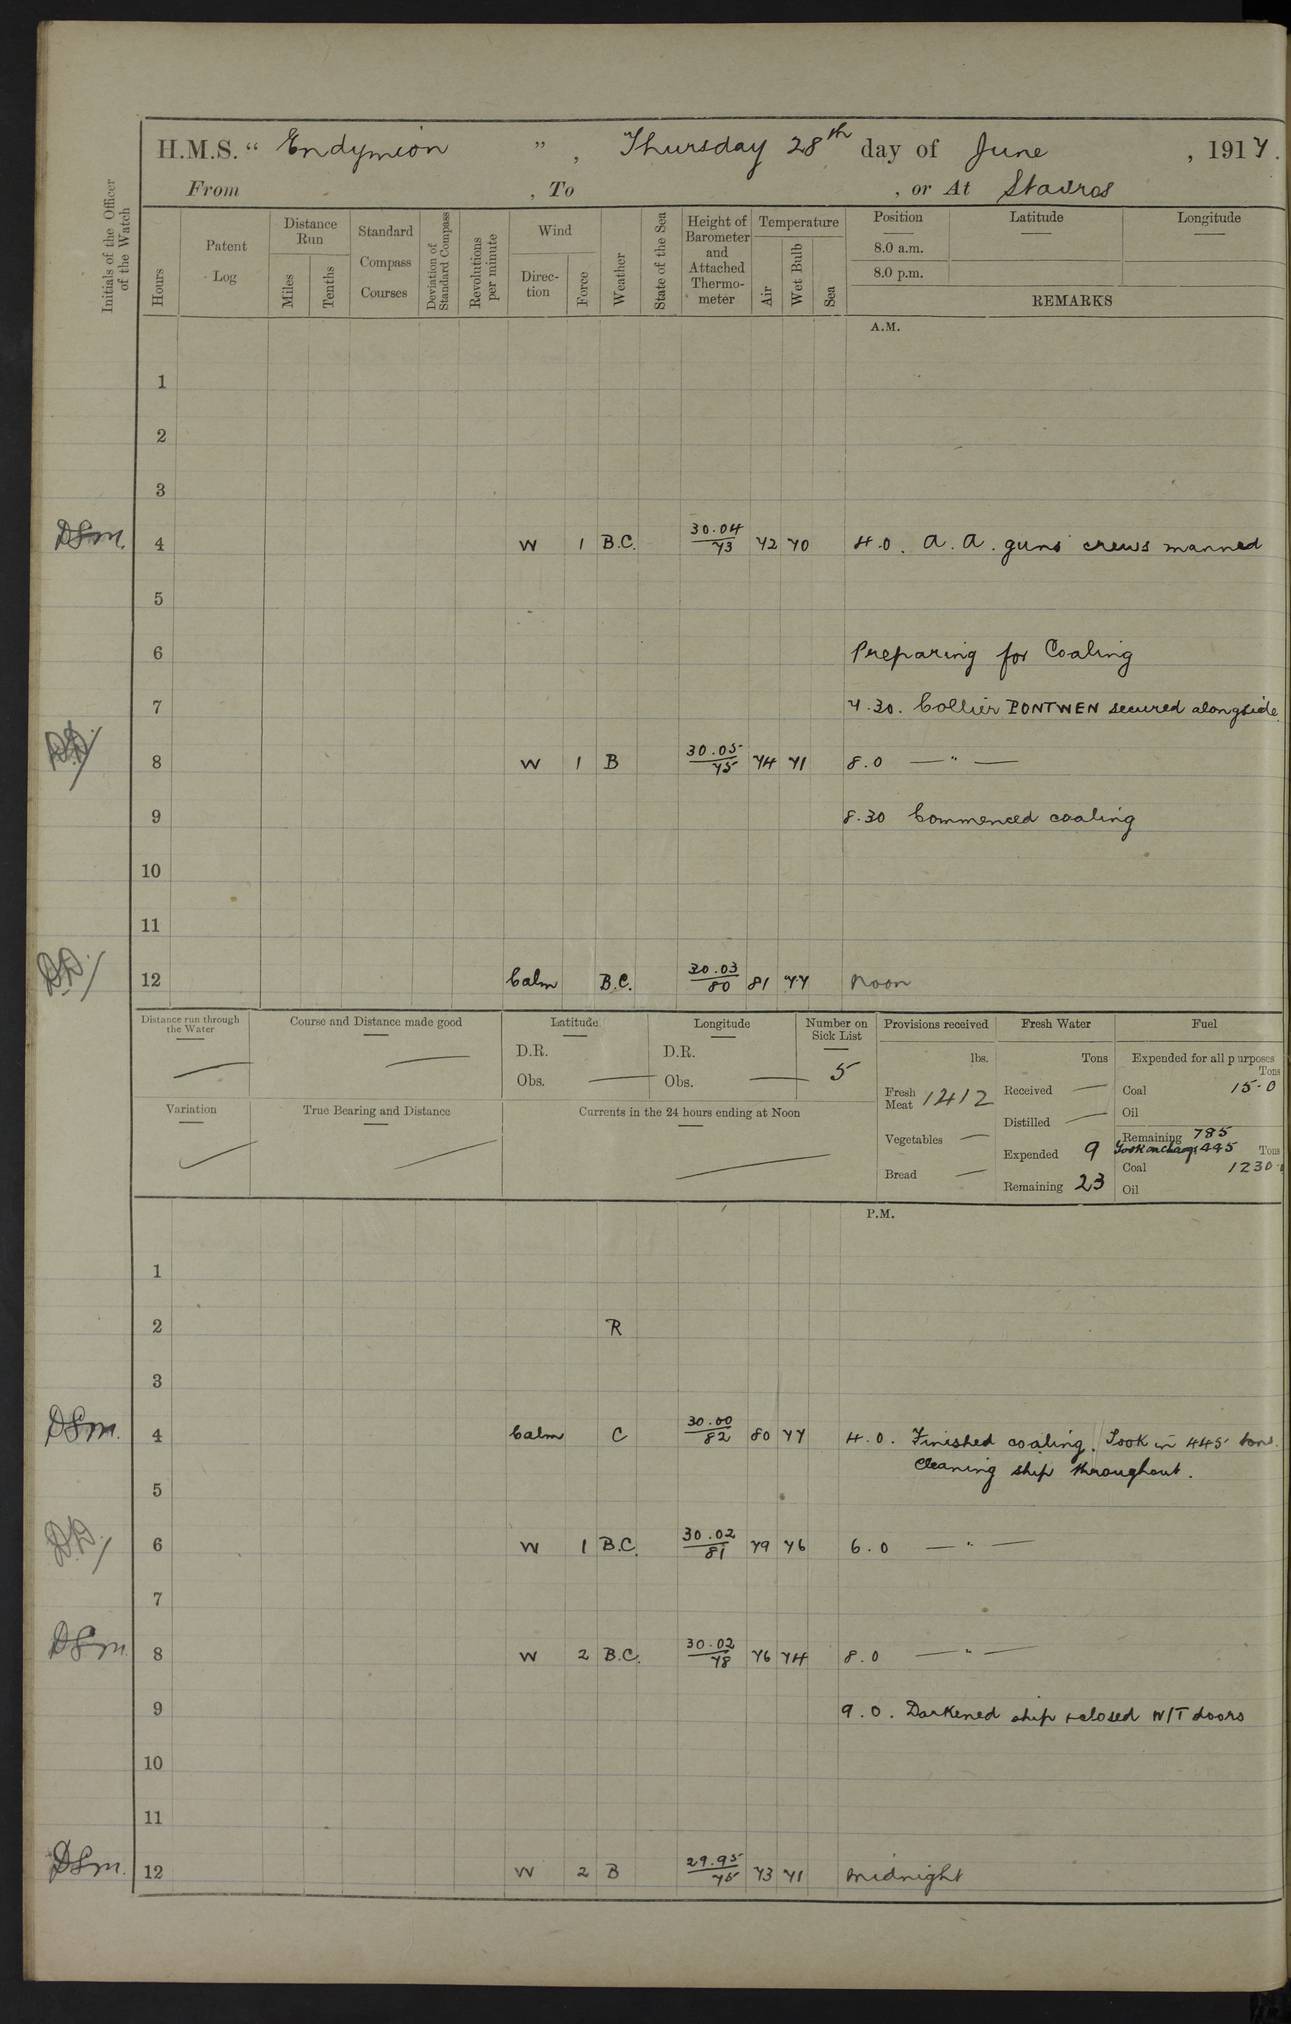 H.M.S. “ Endymion ” , Thursday 28th day of June , 1917.
From , To , or At Stavros
Initials of the Officer of the Watch
Hours
Patent Log
Distance Run
Miles
Tenths
Standard Compass Courses
Deviation of Standard Compass
Revolutions per minute
Wind
Direc-tion
Force
Weather
State of the Sea
Height of Barometer and Attached Thermo-meter
Temperature
Air
Wet Bulb
Sea
Position Latitude Longitude
8.0 a.m.
8.0 p.m.
REMARKS
A.M.
1
2
3
DSm. 4 W 1 B.C. 30.04/73 72 70 4.0. A.A. guns crews manned
5
6 Preparing for Coaling
7 7.30. Collier PONTWEN secured alongside.
D.D. 8 W 1 B 30.05/75 74 71 8.0 — " —
9 8.30 Commenced coaling
10
11
D.D. 12 Calm B.C. 30.03/80 81 77 Noon
Distance run through the Water
Course and Distance made good
Latitude
D.R.
Obs. —
Longitude
D.R.
Obs. —
Number on Sick List
5
Variation
True Bearing and Distance
Currents in the 24 hours ending at Noon
Provisions received
lbs.
Fresh Meat 1412
Vegetables —
Bread —
Fresh Water
Tons
Received —
Distilled —
Expended 9
Remaining 23
Fuel
Expended for all purposes
Tons
Coal 15.0
Oil
Remaining 785
Took on charge 445 Tons
Coal 1230.0
Oil
P.M.
1
2 R
3
DSm. 4 Calm C 30.00/82 80 77 4.0. Finished coaling. Took in 445 tons.
Cleaning ship throughout.
5
D.D. 6 W 1 B.C. 30.02/81 79 76 6.0 — " —
7
DSm. 8 W 2 B.C. 30.02/78 76 74 8.0 — " —
9 9.0. Darkened ship + closed W/T doors
10
11
DSm. 12 W 2 B 29.95/75 73 71 Midnight